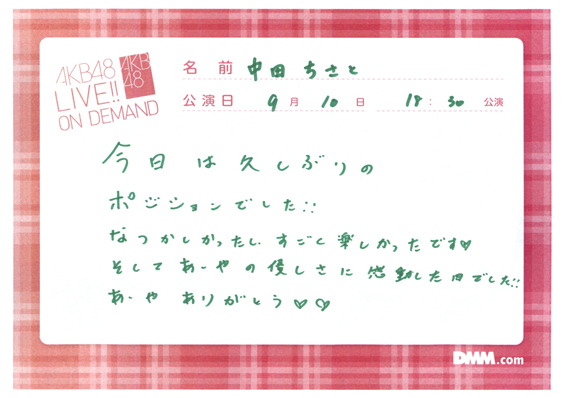 AKB48
LIVE!!
ON DEMAND
AKB
48
名 前 中田 ちさと
公演日 9月 10日 18:30 公演
今日は久しぶりの
ポジションでした!!
なつかしかったし、すごく楽しかったです♡
そしてあーやの優しさに感動した日でした!!
あーや ありがとう♡♡
DMM.com